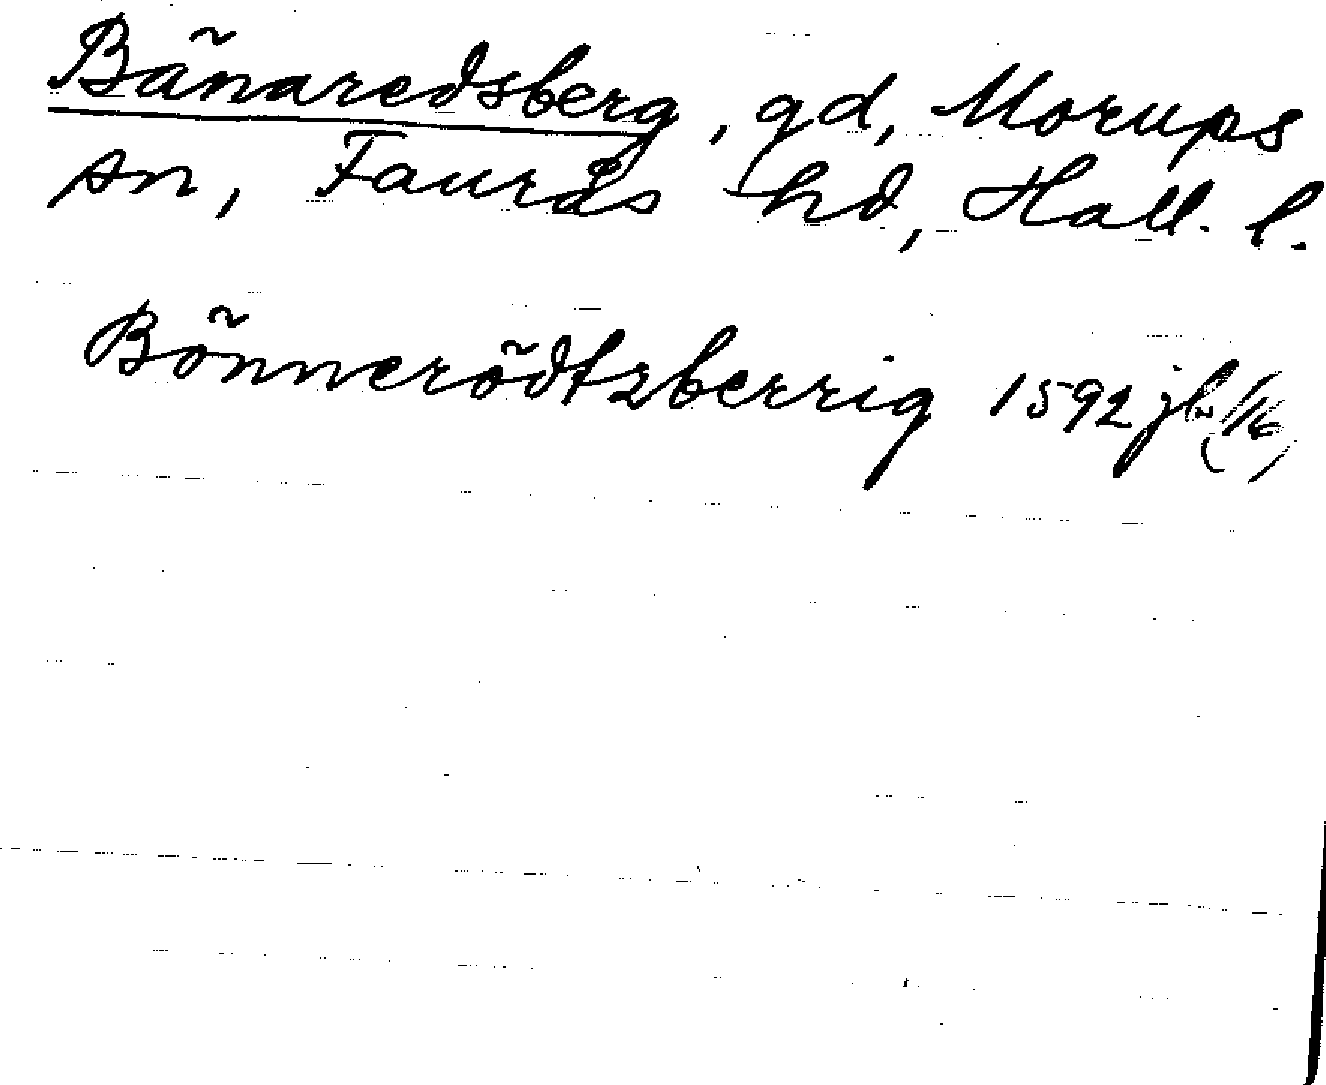 Bänaredsberg, gd, Morups
sn, Faurås hd, Hall. l.
Bönnerödtzberrig 1592 jb